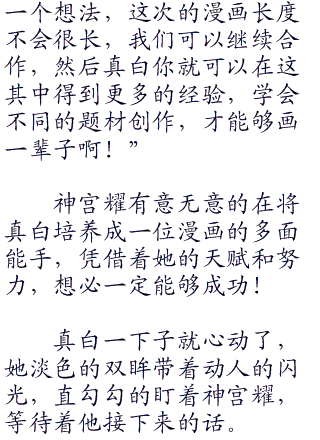 一个想法，这次的漫画长度
不会很长，我们可以继续合
作，然后真白你就可以在这
其中得到更多的经验，学会
不同的题材创作，才能够画
一辈子啊！”
神宫耀有意无意的在将
真白培养成一位漫画的多面
能手，凭借着她的天赋和努
力，想必一定能够成功！
真白一下子就心动了，
她淡色的双眸带着动人的闪
光，直勾勾的盯着神宫耀，
等待着他接下来的话。